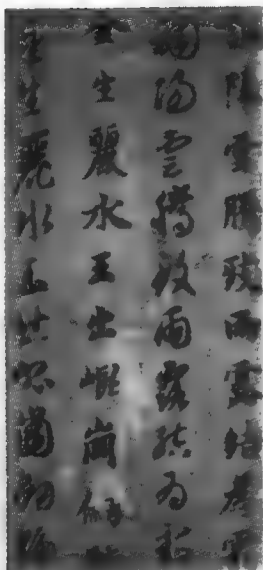 陽雲騰致雨露結為霜
調陽雲騰致雨露結為霜
金生麗水玉出崐崗劍
金生麗水玉出崐崗劍號